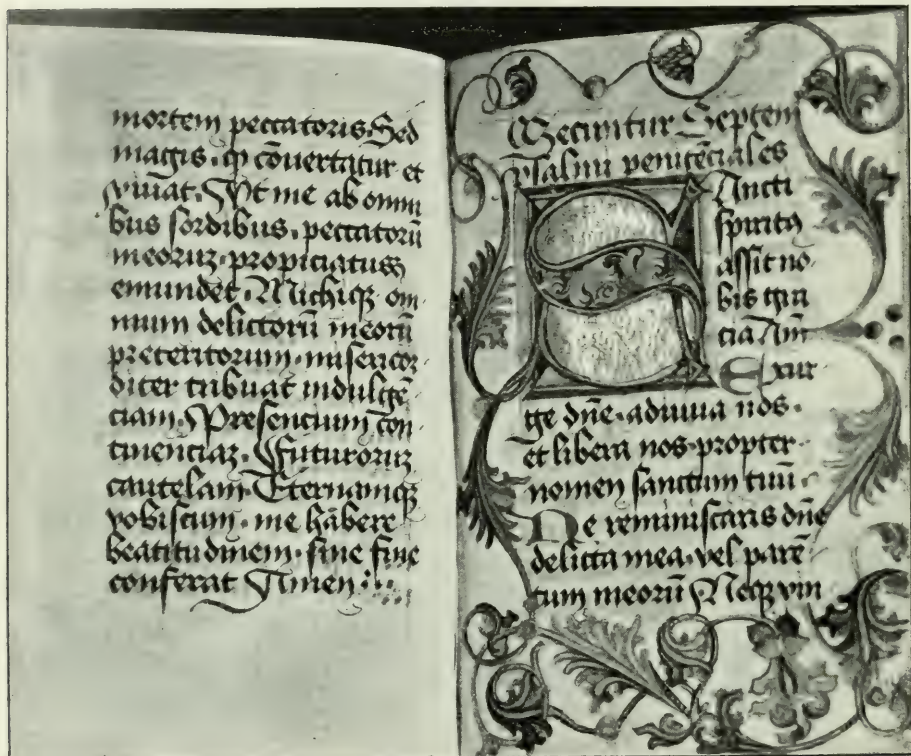 mortem peccatoris. Sed
magis. q̄ cōuertatur et
viuat. Vt me ab omni
bus sordibus. peccatorū
meoruʒ. propiciatus
emundet. Michiqʒ om
nium delictorū meorū
preteritorum. misericor
diter tribuat indulgē
ciam. Presencium con
tinenciaʒ. Futuroruʒ
cautelam. Eternamqʒ
vobiscum. me habere
beatitudinem. sine fine
conferat Amen
Secuntur Septem
psalmi penitēciales
Sancti
spiritꝰ
assit no
bis gra
cia Am̄
Exur
ge dn̄e. adiuua nos.
et libera nos. propter
nomen sanctum tuū.
Ne reminiscaris dn̄e
delicta mea. vel parē
tum meorū Neqʒ vin